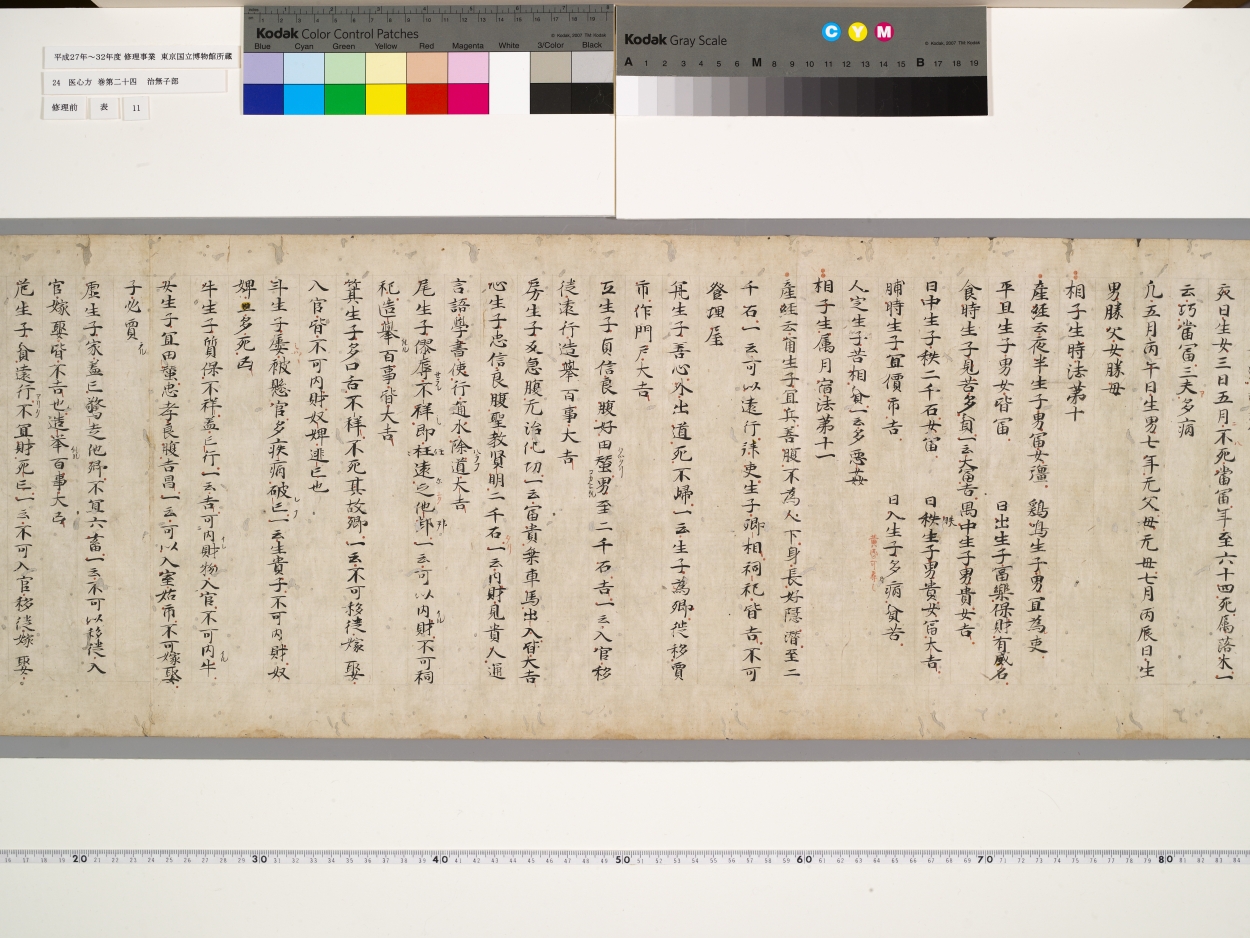 平成27年～32年度 修理事業 東京国立博物館所蔵
24 医心方 巻第二十四 治無子部
修理前 表 11
Kodak Color Control Patches
Blue Cyan Green Yellow Red Magenta White 3/Color Black
Kodak Gray Scale
C Y M
A 1 2 3 4 5 6 M 8 9 10 11 12 13 14 15 B 17 18 19
亥日生女三日五月不死當冨年至六十四死属路水一
云巧當冨三夫多病
凡五月丙午日生男七年亢父母亢母七月丙辰日生
男勝父女勝母
相子生時法第十
産経云夜半生子男冨女彊 鷄鳴生子男宜為吏
平旦生子男女皆冨 日出生子冨樂保財有威名
食時生子見苦多負一云大冨吉禺中生子男貴女吉
日中生子秩二千石女冨 日昳生子男貴女冨大吉
晡時生子宜價市吉 日入生子多病貧苦
人定生子苦相貧一云多悪姦
相子生属月宿法第十一
産経云角生子宜兵善腹不為人下身長好隠潜至二
千石一云可以遠行決吏生子卿相祠祀皆吉不可
登埋屋
亢生子善心外出道死不歸一云生子為卿徙移賈
市作門戸大吉
互生子貞信良腹好田蠶男至二千石吉一云入官移
徙遠行造舉百事大吉
房生子反急腹无治他切一云富貴乗車馬出入皆大吉
心生子忠信良腹聖教賢明二千石一云内財見貴人通
言語學書使行通水除道大吉
尾生子僇辱不祥即枉遠之他郷一云可以内財不可祠
祀造舉百事皆大吉
箕生子多口舌不祥不死其故郷一云不可移徙嫁娶
入官皆不可内財奴婢逃亡也
斗生子屡被懸官多疾病破亡一云生貴子不可内財奴
婢且多死凶
牛生子質保不祥盖亡行一云吉可内財物入官不可内牛
女生子宜田蠶忠孝良腹吉昌一云可以入室姑市不可嫁娶
子必賈
虚生子家盖亡驚走他郷不宜六畜一云不可以移徙入
官嫁娶皆不吉也造舉百事大凶
危生子貧遠行不宜財死亡一云不可入官移徙嫁娶
20 30 40 50 60 70 80